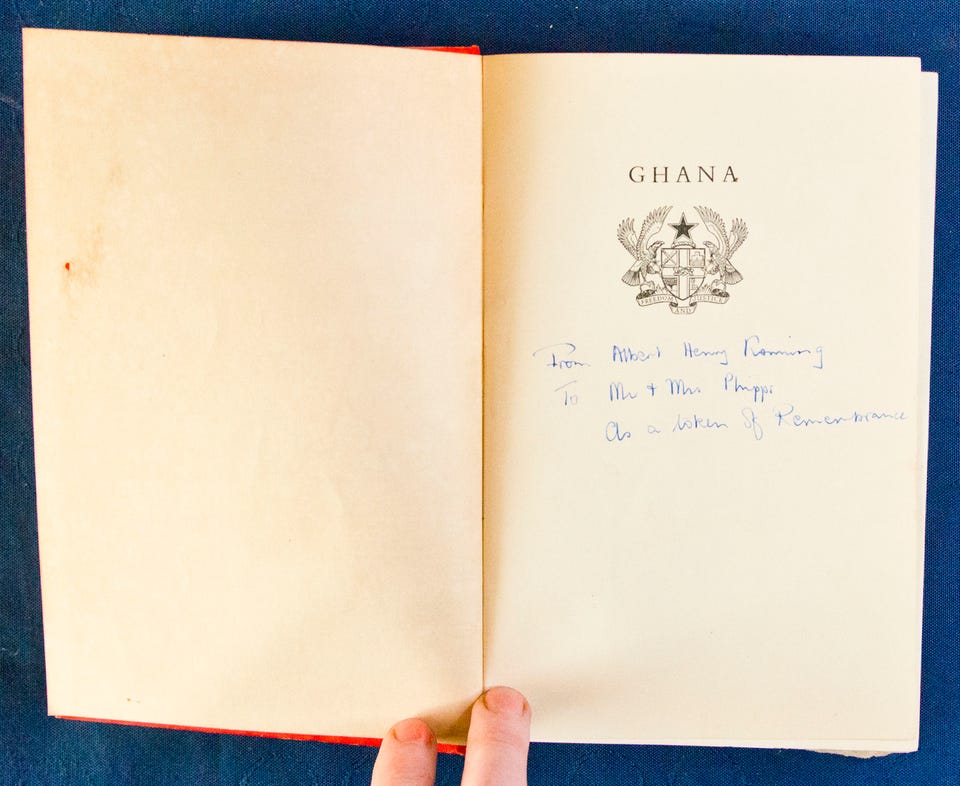 GHANA
FREEDOM AND JUSTICE
From Albert Henry Ronning
To Mr + Mrs Phipps
As a token of Remembrance